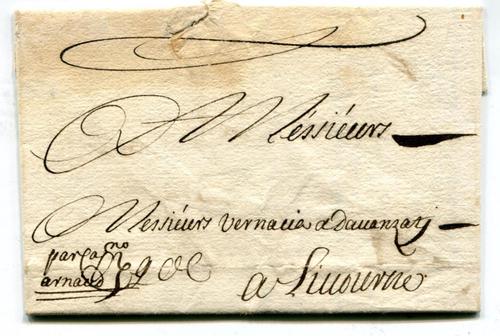 A Messieurs
Messieurs Vernacia & Davanzatj
par ca^no
arnaud
a Livourne